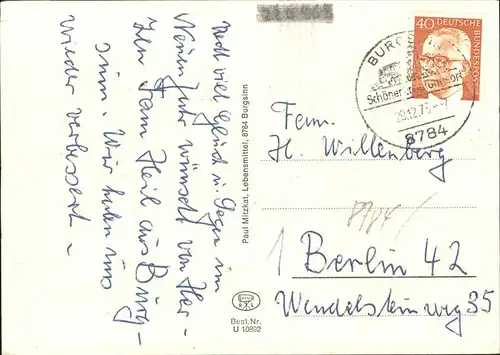 Recht viel Glück u. Segen im
Neuen Jahr wünscht von Her-
zen Fam. Heil aus Burg-
sinn. Wir haben uns
wieder verbessert -
Paul Mitzkat, Lebensmittel, 8784 Burgsinn
Best.Nr.
U 10892
40 DEUTSCHE
BUNDESPOST
BURG
Schöner
29.12.73
8784
Fam.
H. Willenberg
1 Berlin 42
Wendelsteinweg 35